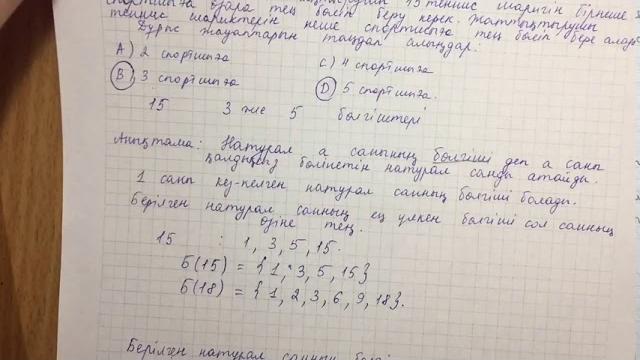 спортшыға өзара тең бөліп беру керек. Жаттықтырушы
теннис шариктерін неше спортшыға тең бөліп бере алады
Дұрыс жауаптарын таңдап алыңдар:
A) 2 спортшыға C) 4 спортшыға
B) 3 спортшыға D) 5 спортшыға.
15 3 және 5 бөлгіштері
Анықтама: Натурал а санының бөлгіші деп а саны
қалдықсыз бөлінетін натурал санды атайды.
1 саны кез-келген натурал санның бөлгіші болады.
Берілген натурал санның ең үлкен бөлгіші сол санның
өзіне тең.
15 : 1, 3, 5, 15.
Б(15) = {1, 3, 5, 15}
Б(18) = {1, 2, 3, 6, 9, 18}.
Берілген натурал санның